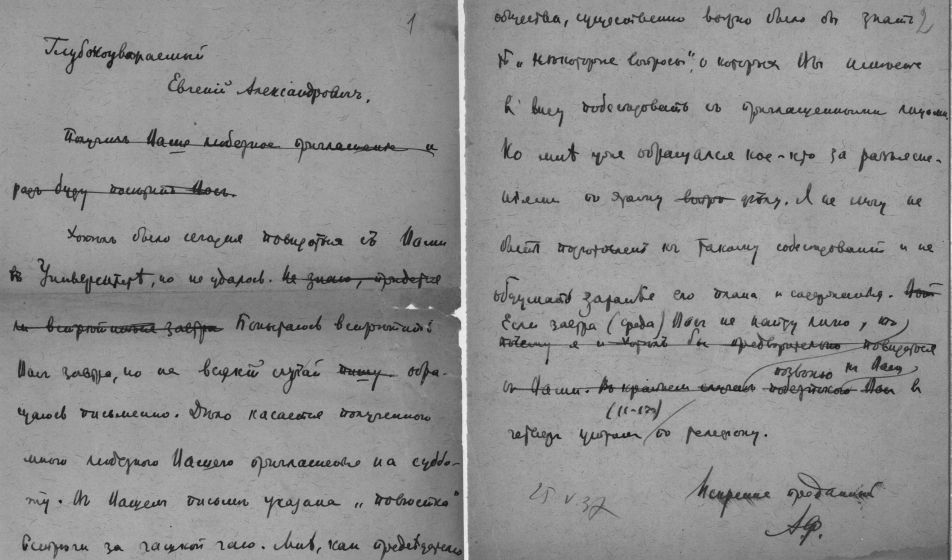 1
Глубокоуважаемый
Евгенiй Александровичъ,
Получилъ Ваше любезное приглашенiе и
радъ буду посѣтить Васъ.
Хотѣлъ было сегодня повидаться съ Вами
въ Университетѣ, но не удалось. Не знаю, придется
ли встрѣтиться завтра Попытаюсь встрѣтить
Васъ завтра, но на всякiй случай пишу обра-
щаюсь письменно. Дѣло касается полученнаго
мною любезнаго Вашего приглашенья на суббо-
ту. Въ Вашемъ письмѣ указана „повѣстка“
встрѣчи за чашкой чаю. Мнѣ, какъ предсѣдателю
2
общества, существенно важно было бы знать
тѣ „нѣкоторые вопросы“, о которыхъ Вы имѣете
въ виду побесѣдовать съ приглашенными лицами.
Ко мнѣ уже обращался кое-кто за разъясне-
нiями по этому вопро дѣлу. Я не могу не
быть подготовленъ къ такому собесѣдованiю и не
обдумать заранѣе его плана и содержанья. Вот
Если завтра (среда) Васъ не найду лично, то
почему я и хотѣлъ бы предварительно повидаться
позвоню къ Вамъ
съ Вами. Въ крайнемъ случаѣ побезпокою Васъ въ
(11-12ч)
четвергъ утромъ по телефону.
Искренне преданный
25 V 37
АФ.